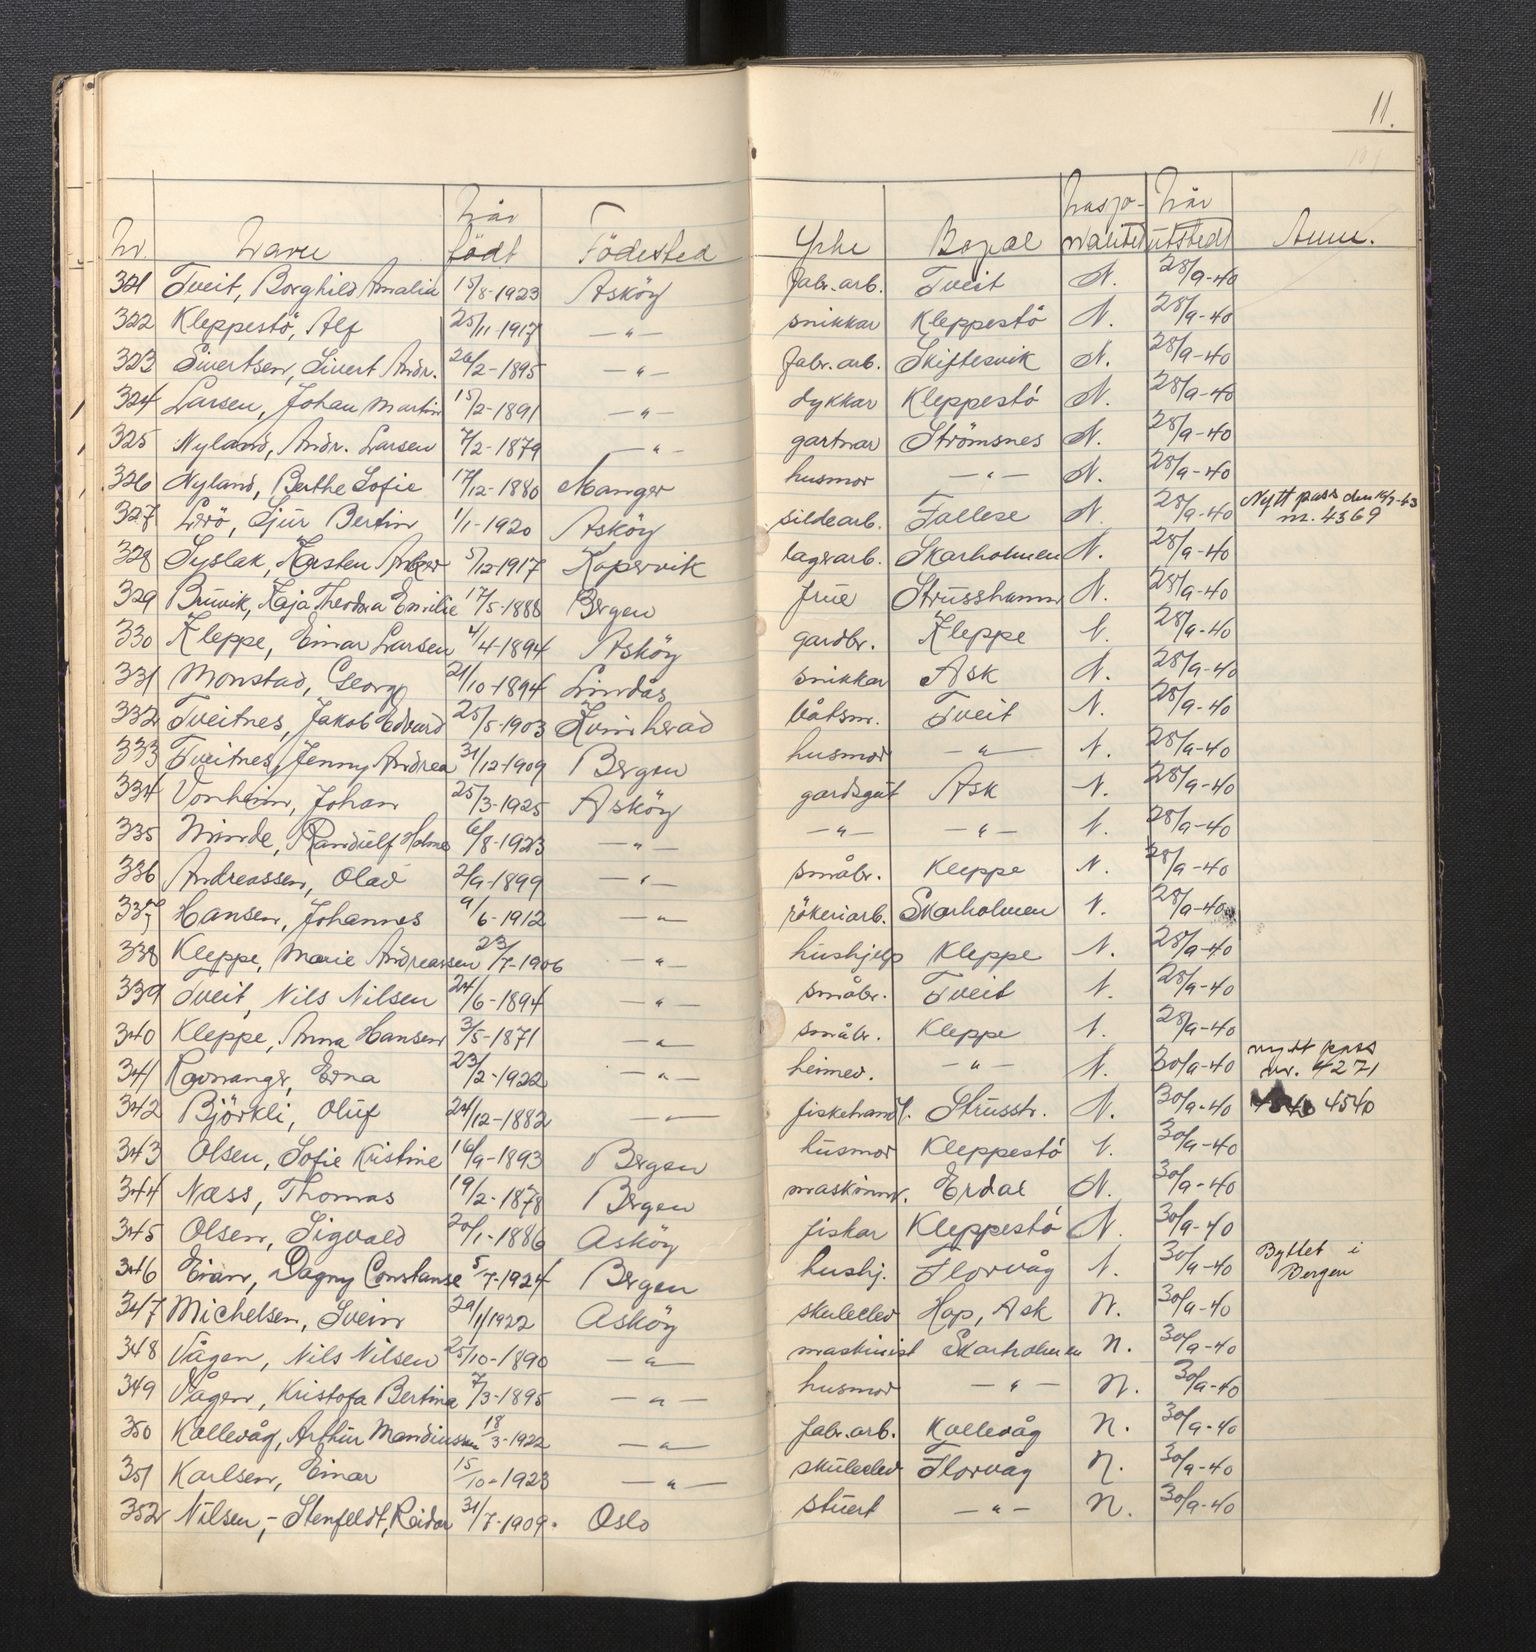 11.
Nr. Navn Når födt Födested Yrke Bopæl Nasjonalitet Når utstedt Anm.
321 Tveit, Borghild Amalia 15/8-1923 Asköy fabr.arb. Tveit N. 28/9-40
322 Kleppestö, Alf 25/11-1917 —"— snikkar Kleppestö N. 28/9-40
323 Sivertsen, Sivert Andr. 26/2-1895 —"— fabr.arb. Skiftesvik N. 28/9-40
324 Larsen, Johan Martin 15/2-1891 —"— dykkar Kleppestö N. 28/9-40
325 Nyland, Andr. Larsen 7/2-1879 —"— gartnar Strömsnes N. 28/9-40
326 Nyland, Berthe Sofie 17/12-1880 Manger husmor —"— N. 28/9-40
327 Lerö, Sjur Bertin 1/1-1920 Asköy sildearb. Follese N. 28/9-40 Nytt pass den
nr. 4369
328 Syslak, Karsten 5/12-1917 Kopervik lagerarb. Skarholmen N. 28/9-40
329 Bruvik, Kaja Theodora Emilie 17/5-1888 Bergen frue Strusshamn N. 28/9-40
330 Kleppe, Einar Larsen 4/4-1894 Asköy gardbr. Kleppe N. 28/9-40
331 Monstad, Georg 21/10-1894 Lindås snikkar Ask N. 28/9-40
332 Tveitnes, Jakob Edvard 25/5-1903 Kvinherad båtsm. Tveit N. 28/9-40
333 Tveitnes, Jenny Andrea 31/12-1909 Bergen husmor —"— N. 28/9-40
334 Vonheim, Johan 25/3-1925 Asköy gardsgut Ask N. 28/9-40
335 Minde, Randulf Holmer 6/8-1923 —"— —"— —"— N. 28/9-40
336 Andreassen, Olav 2/9-1899 —"— småbr. Kleppe N. 28/9-40
337 Hansen, Johannes 9/6-1912 —"— rökeriarb. Skarholmen N. 28/9-40
338 Kleppe, Marie Andreassen 23/7-1906 —"— hushjelp Kleppe N. 28/9-40
339 Tveit, Nils Nilsen 24/6-1894 —"— småbr. Tveit N. 28/9-40
340 Kleppe, Anna Hansen 3/5-1871 —"— småbr. Kleppe N. 28/9-40
341 Ravnanger, Erna 23/2-1922 —"— heimev. —"— N. 30/9-40 nytt pass
nr. 4271
342 Björkli, Oluf 24/12-1882 —"— fiskehandl. Strusstr. N. 30/9-40 4540
343 Olsen, Sofie Kristine 16/9-1893 Bergen husmor Kleppestö N. 30/9-40
344 Næss, Thomas 19/2-1878 Bergen maskinm. Erdal N. 30/9-40
345 Olsen, Sigvald 20/1-1886 Asköy fiskar Kleppestö N. 30/9-40
346 Eian, Dagny Constanse 5/7-1924 Bergen hushj. Florvåg N. 30/9-40 Byttet i
Bergen
347 Michelsen, Svein 29/11 1922 Asköy skuleelev Hop, Ask N. 30/9-40
348 Vågen, Nils Nilsen 25/10-1890 —"— maskinist Skarholmen N. 30/9-40
349 Vågen, Kristofa Bertina 7/3-1895 —"— husmor —"— N. 30/9-40
350 Kollevåg, Arthur Mandiussen 18/3-1922 —"— fabr.arb. Kollevåg N. 30/9-40
351 Karlsen, Einar 15/10-1923 —"— skuleelev Florvåg N. 30/9-40
352 Nilsen,- Stenfeldt, Reidar 31/7-1909. Oslo stuert —"— N. 30/9-40